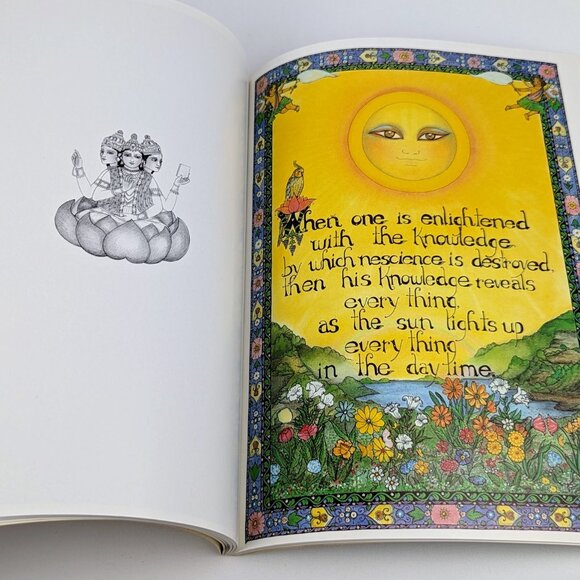 When one is enlightened
with the knowledge
by which nescience is destroyed,
then his knowledge reveals
every thing,
as the sun lights up
every thing
in the daytime.